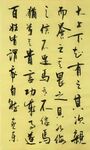 太上下知有之其次親
而譽之其次畏之其次侮
之信不足焉有不信
猶兮其貴言功成事遂
百姓皆謂我自然